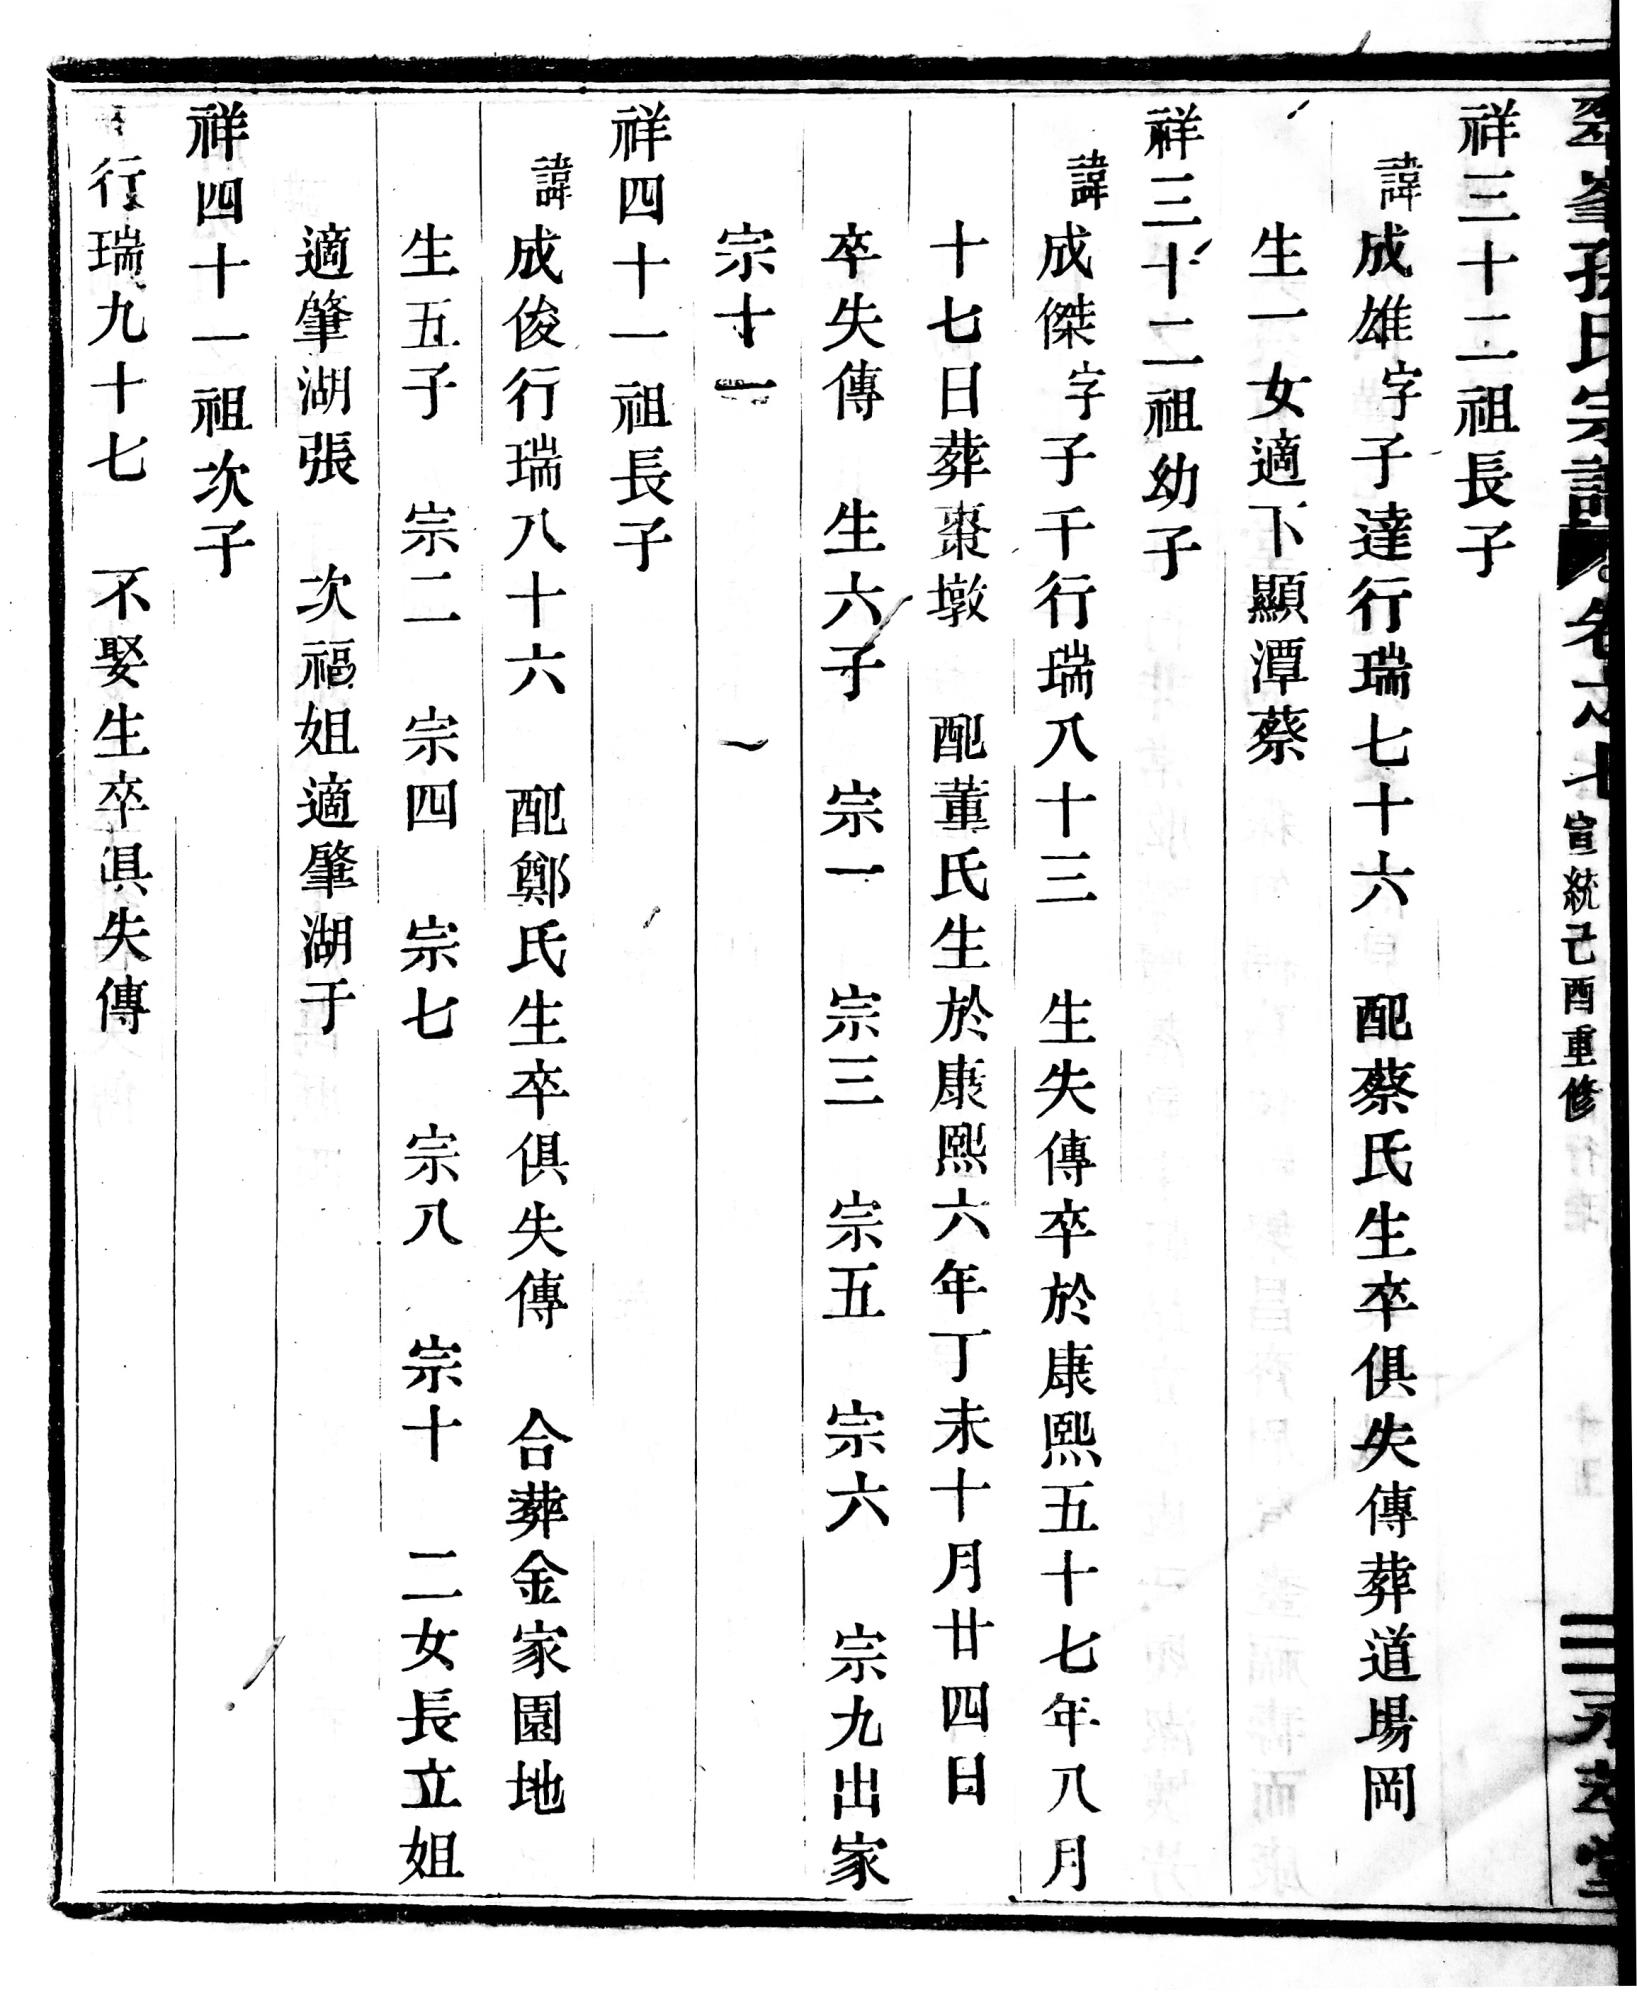 翠峯孫氏宗譜 卷之七 宣統己酉重修 永萃堂
祥三十二祖長子
諱成雄字子達行瑞七十六 配蔡氏生卒俱失傳葬道場岡
生一女適下顯潭蔡
祥三十二祖幼子
諱成傑字子千行瑞八十三 生失傳卒於康熙五十七年八月
十七日葬棗墩 配董氏生於康熙六年丁未十月廿四日
卒失傳 生六子 宗一 宗三 宗五 宗六 宗九出家
宗十一
祥四十一祖長子
諱成俊行瑞八十六 配鄭氏生卒俱失傳 合葬金家園地
生五子 宗二 宗四 宗七 宗八 宗十 二女長立姐
適肇湖張 次福姐適肇湖于
祥四十一祖次子
行瑞九十七 不娶生卒俱失傳